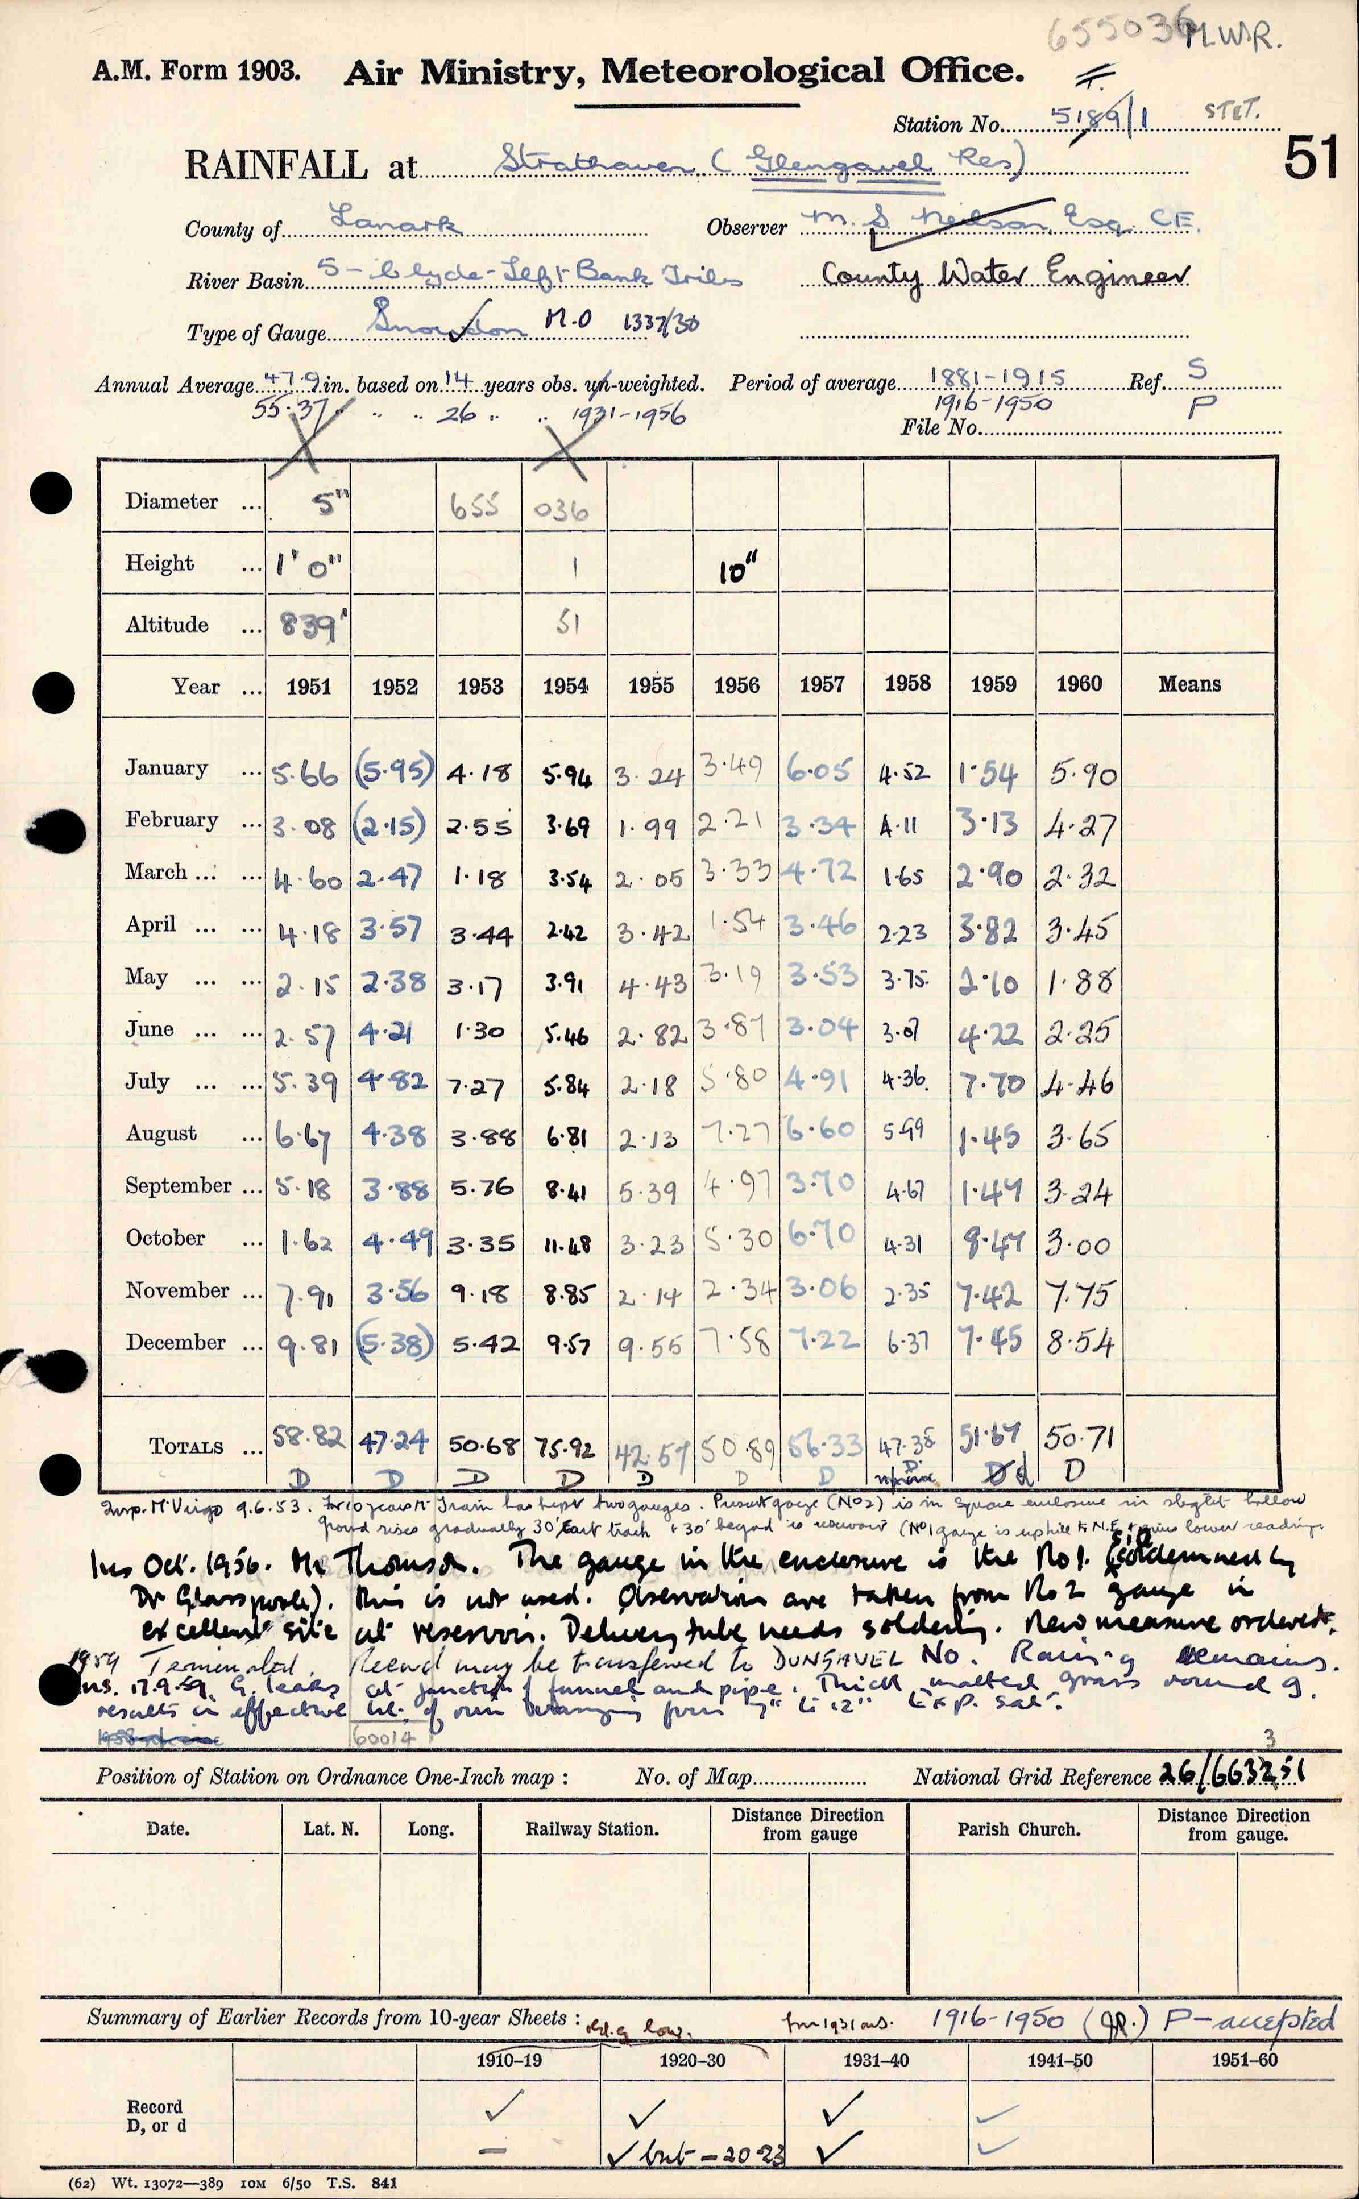 655036 M.W.R.
A.M. Form 1903. Air Ministry, Meteorological Office.
Station No. 5189/1 STET.
RAINFALL at Strathaven (Glengavel Res) 51
County of Lanark Observer M. S. Neilson Esq. C.E.
River Basin 5 - Clyde - Left Bank Tribs County Water Engineer
Type of Gauge Snowdon M.O 1337/30
Annual Average 47.9 in. based on 14 years obs. un-weighted. Period of average 1881-1915 Ref. S
55.37 " " " 26 " " 1931-1956 1916-1950 P
File No.
Diameter ... 5" 655 036
Height ... 1' 0" 1 10"
Altitude ... 839' 51
Year ... 1951 1952 1953 1954 1955 1956 1957 1958 1959 1960 Means
January ... 5.66 (5.95) 4.18 5.94 3.24 3.49 6.05 4.52 1.54 5.90
February ... 3.08 (2.15) 2.55 3.69 1.99 2.21 3.34 4.11 3.13 4.27
March ... ... 4.60 2.47 1.18 3.54 2.05 3.33 4.72 1.65 2.90 2.32
April ... ... 4.18 3.57 3.44 2.42 3.42 1.54 3.46 2.23 3.82 3.45
May ... ... 2.15 2.38 3.17 3.91 4.43 3.19 3.53 3.75 2.10 1.88
June ... ... 2.57 4.21 1.30 5.46 2.82 3.87 3.04 3.07 4.22 2.25
July ... ... 5.39 4.82 7.27 5.84 2.18 5.80 4.91 4.36 7.70 4.46
August ... 6.67 4.38 3.88 6.81 2.13 7.27 6.60 5.99 1.45 3.65
September ... 5.18 3.88 5.76 8.41 5.39 4.97 3.70 4.67 1.47 3.24
October ... 1.62 4.49 3.35 11.48 3.23 5.30 6.70 4.31 8.47 3.00
November ... 7.91 3.56 9.18 8.85 2.14 2.34 3.06 2.35 7.42 7.75
December ... 9.81 (5.38) 5.42 9.57 9.55 7.58 7.22 6.37 7.45 8.54
TOTALS ... 58.82 47.24 50.68 75.92 42.57 50.89 56.33 47.38 51.67 50.71
D D D D D D D D D d D
Insp. Mr Virgo 9.6.53. For 10 years Mr Train has kept two gauges. Present gauge (No2) is in square enclosure in slight hollow
ground rises gradually 30' East track + 30' beyond is reservoir (No1 gauge is uphill to N.E. + gives lower readings
Ins Oct. 1956. Mr Thomson. The gauge in the enclosure is the No 1. (condemned by
Dr Glasspoole). This is not used. Observations are taken from No 2 gauge in
excellent site at reservoir. Delivery tube needs soldering. New measure ordered.
1959 Terminated. Record may be transferred to DUNGAVEL NO. Rain-g remains.
Ins. 17.9.59. G. leaks at junction of funnel and pipe. Thick matted grass round g.
results in effective ht. of rim varying from 7" to 12" Exp. sat.
60014
Position of Station on Ordnance One-Inch map : No. of Map National Grid Reference 26/663251
3
Date. Lat. N. Long. Railway Station. Distance from gauge Direction Parish Church. Distance from gauge. Direction
Summary of Earlier Records from 10-year Sheets : rdg low. from 1931 ons. 1916-1950 (JR.) P-accepted
1910-19 1920-30 1931-40 1941-50 1951-60
Record ✓ ✓ ✓ ✓
D, or d - ✓ but - 20-23 ✓ ✓
(62) Wt. 13072-389 10M 6/50 T.S. 841